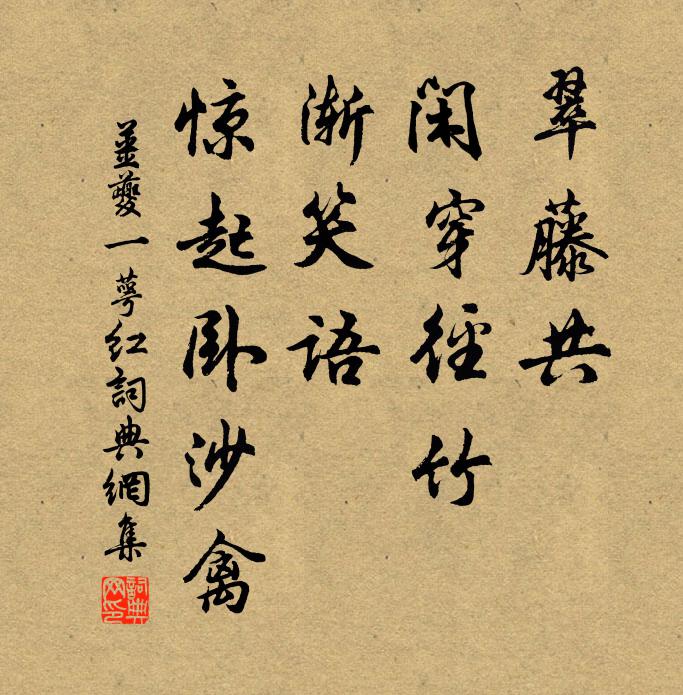 翠藤共
闲穿径竹
渐笑语
惊起卧沙禽
姜夔一萼红詞典網集
詞典网印